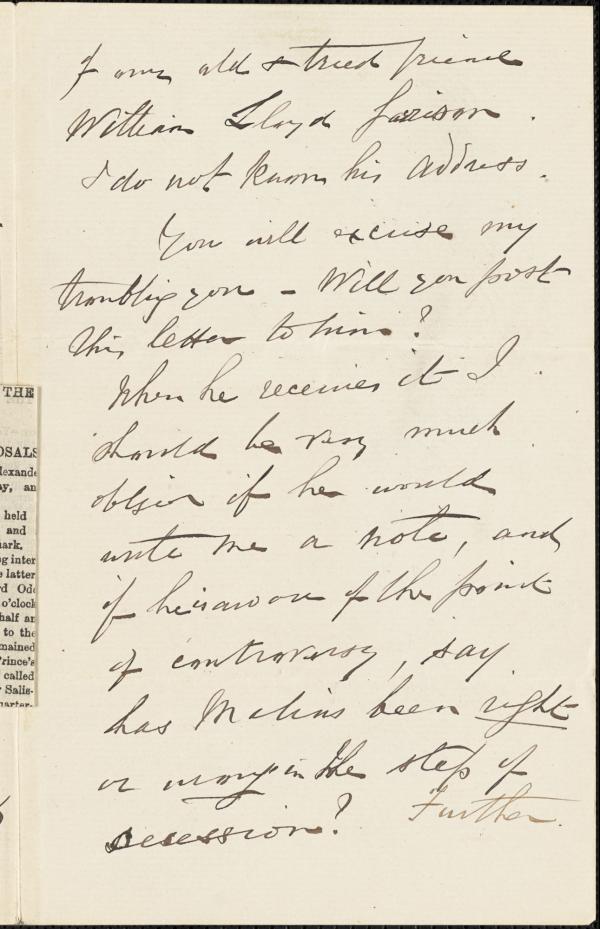 of our old & tried friend
William Lloyd Garrison.
I do not know his address.
You will excuse my
troubling you - Will you post
this letter to him?
When he receives it I
should be very much
obliged if he would
write me a note, and
if he is aware of the point
of controversy, say
has Malins been right
or wrong in the step of
secession? Further.
THE
OSALS
lexande
ay, an
held
and
ark.
g inter
e latter
rd Odo
o'clock
half an
to the
mained
Prince's
called
Salis-
uarter-